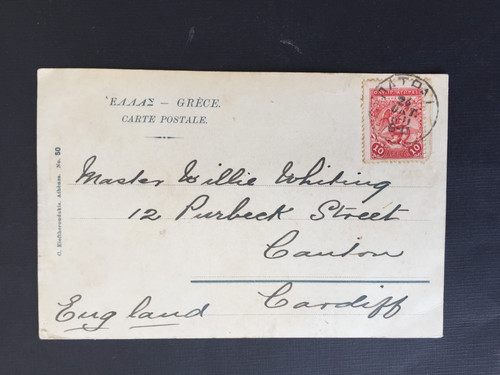 ἙΛΛΑΣ – GRÈCE.
CARTE POSTALE.
10 10
Master Willie Whiting
12 Purbeck Street
Canton
Cardiff
England
C. Eleftheroudakis, Athènes. No. 50